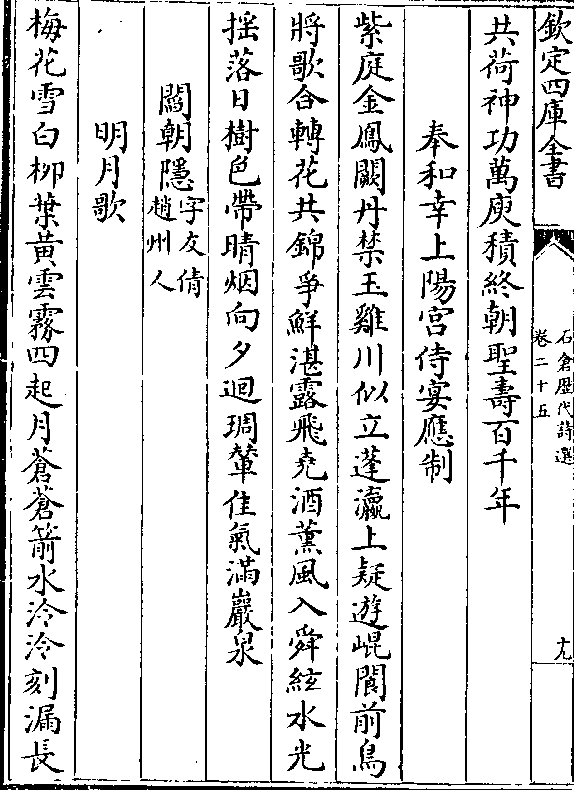 欽定四庫全書
石倉歷代詩選
卷二十五
十九
共荷神功萬庾積終朝聖壽百千年
奉和幸上陽宮侍宴應制
紫庭金鳳闕丹禁玉雞川似立蓬瀛上疑遊崐閬前鳥
將歌合轉花共錦爭鮮湛露飛堯酒薰風入舜絃水光
揺落日樹色帶晴烟向夕迴琱輦佳氣滿巖泉
閻朝隱字友倩
趙州人
明月歌
梅花雪白栁葉黃雲霧四起月蒼蒼箭水泠泠刻漏長